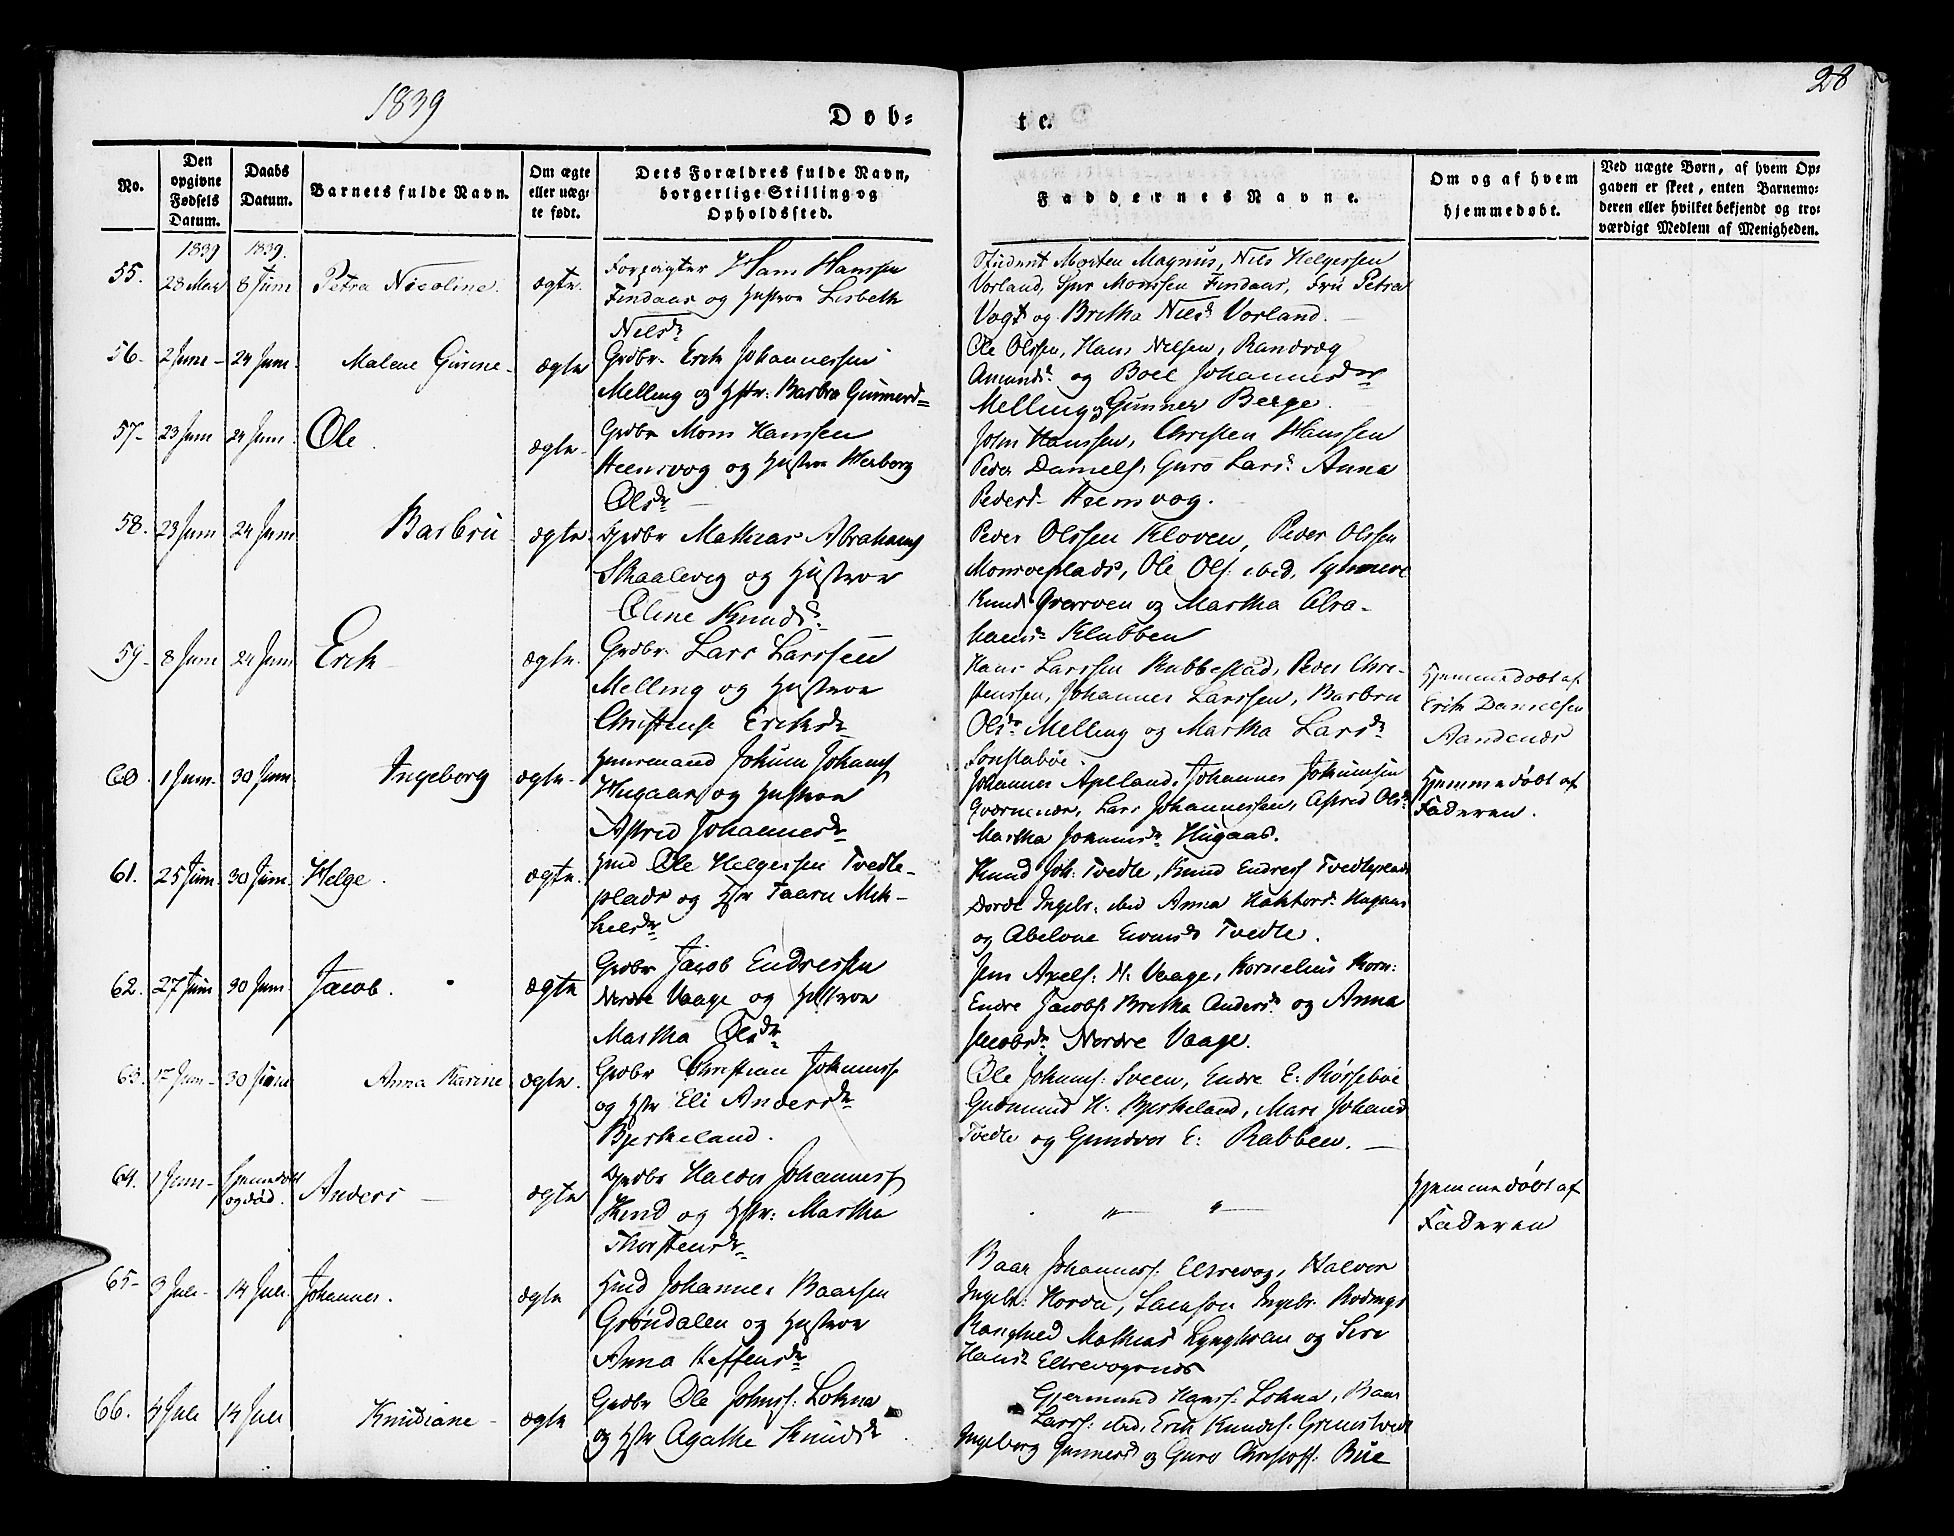 1839
Døb-
te.
28
No.
Den opgivne Fødsels Datum.
Daabs Datum.
Barnets fulde Navn.
Om ægte eller uægte født.
Dets Forældres fulde Navn, borgerlige Stilling og Opholdssted.
Faddernes Navne.
Om og af hvem hjemmedøbt.
Ved uægte Børn, af hvem Opgaven er skeet, enten Barnemoderen eller hvilket bekjendt og troværdigt Medlem af Menigheden.
1839 1839.
55. 28 Mai 8 Juni Petra Nicoline. ægte. Forpagter Hans Hansen
Findaas og Hustroe Lisbeth
Nilsdr
Student Morten Magnus, Nils Helgersen
Vorland, Sjur Monssen Findaas, Fru Petra
Vogt og Britha Nilsdr Vorland.
56. 2 Juni 24 Juni Malene Gurine ægte Grdbr. Erik Johannessen
Melling og Hstr: Barbra Gunnersd
Ole Olssen, Hans Nilsen, Randvæg
Amundsdr og Boel Johannesdr
Melling og Gunner Berge.
57 23 Juni 24 Juni Ole. ægte. Grdbr Mons Hansen
og Hustroe Herborg
Olsdr
John Hanssen, Christen Hanssen
Peder Daniels. Guro Larsdr Anna
Pedersd
58. 23 Juni 24 Juni Barbru ægte. Grdbr Mathias Abrahams
Skaalevig og Hustroe
Oline Knudsdr
Peder Olssen Kloven, Peder Olssen
Ole Ols: ibid, Synneve
Knudsd og Martha Abra-
hamsdr Klubben
59 8 Juni 24 Juni Erik ægte. Grdbr. Lars Larssen
Melling og Hustroe
Christense Eriksdr
Hans Larssen Rubbestad, Peder Chri-
stenssen, Johannes Larssen, Barbru
Olsdr Melling og Martha Larsdr
Sonstabøe.
Hjemmedøbt af
Erik Danielsen
Aandenæs
60. 1 Juni 30 Juni Ingeborg ægte. Huusmand Johan Johans
Hugaas og Hustroe
Astrid Johannesdr
Johannes Apeland, Johannes
Lars Johannessen, Astrid Olsdr
Martha Hugaas.
Hjemmedøbt af
Faderen.
61. 25 Juni 30 Juni Helge. ægte. Hmd Ole Helgersen Tvedte-
plads og Hstr Taaru Mik-
kelsdr
Knud Joh: Tvedte, Knud Endress Tvedteplads
Dorde Ingebr. ibid Anna Hugaas
og Abelone Tvedte.
62. 27 Juni 30 Juni Jacob. ægte Grdbr Jacob Endressen
Nordre Vaage og Hustroe
Martha Olsdr
Jens Axels: N: Vaage, Kornelius Korn:
Endre Jacobs. Britha Andersdr og Anna
Jacobsdr Nordre Vaage.
63. 17 Juni 30 Juni Anna Karine ægte. Grdbr Christian Johanns
og Hstr Eli Andersdr
Bjerkeland.
Ole Johanns: Sveen, Endre E:
Gudmund H: Bjerkeland, Mari Johansd
Tvedte og Gundvor E: Rabben.
64. 1 Juni Hjemmedøbt
og død. Anders ægte Grdbr Haldor Johanness
og Hstr: Martha
Thorstensdr
〃 〃
Hjemmedøbt af
Faderen
65 3 Juli 14 Juli Johannes. ægte Hmd Johannes Baarsen
Grøndalen og Hustroe
Anna Steffensdr
Baar Johanness: Elsrevog, Halvor
Ingebr: Samson Ingebr.
Mathias og Siri
Hansdr
66. 4 Juli 14 Juli Knudiane ægte Grdbr Ole Johns: Lokna
og Hstr Agathe Knudsdr
Gjermund Hans: Lokna, Baar
Larss: ibid, Erik Knuds: Grimstvedt
Ingeborg Gunnersd og Guro Christoff: Bue